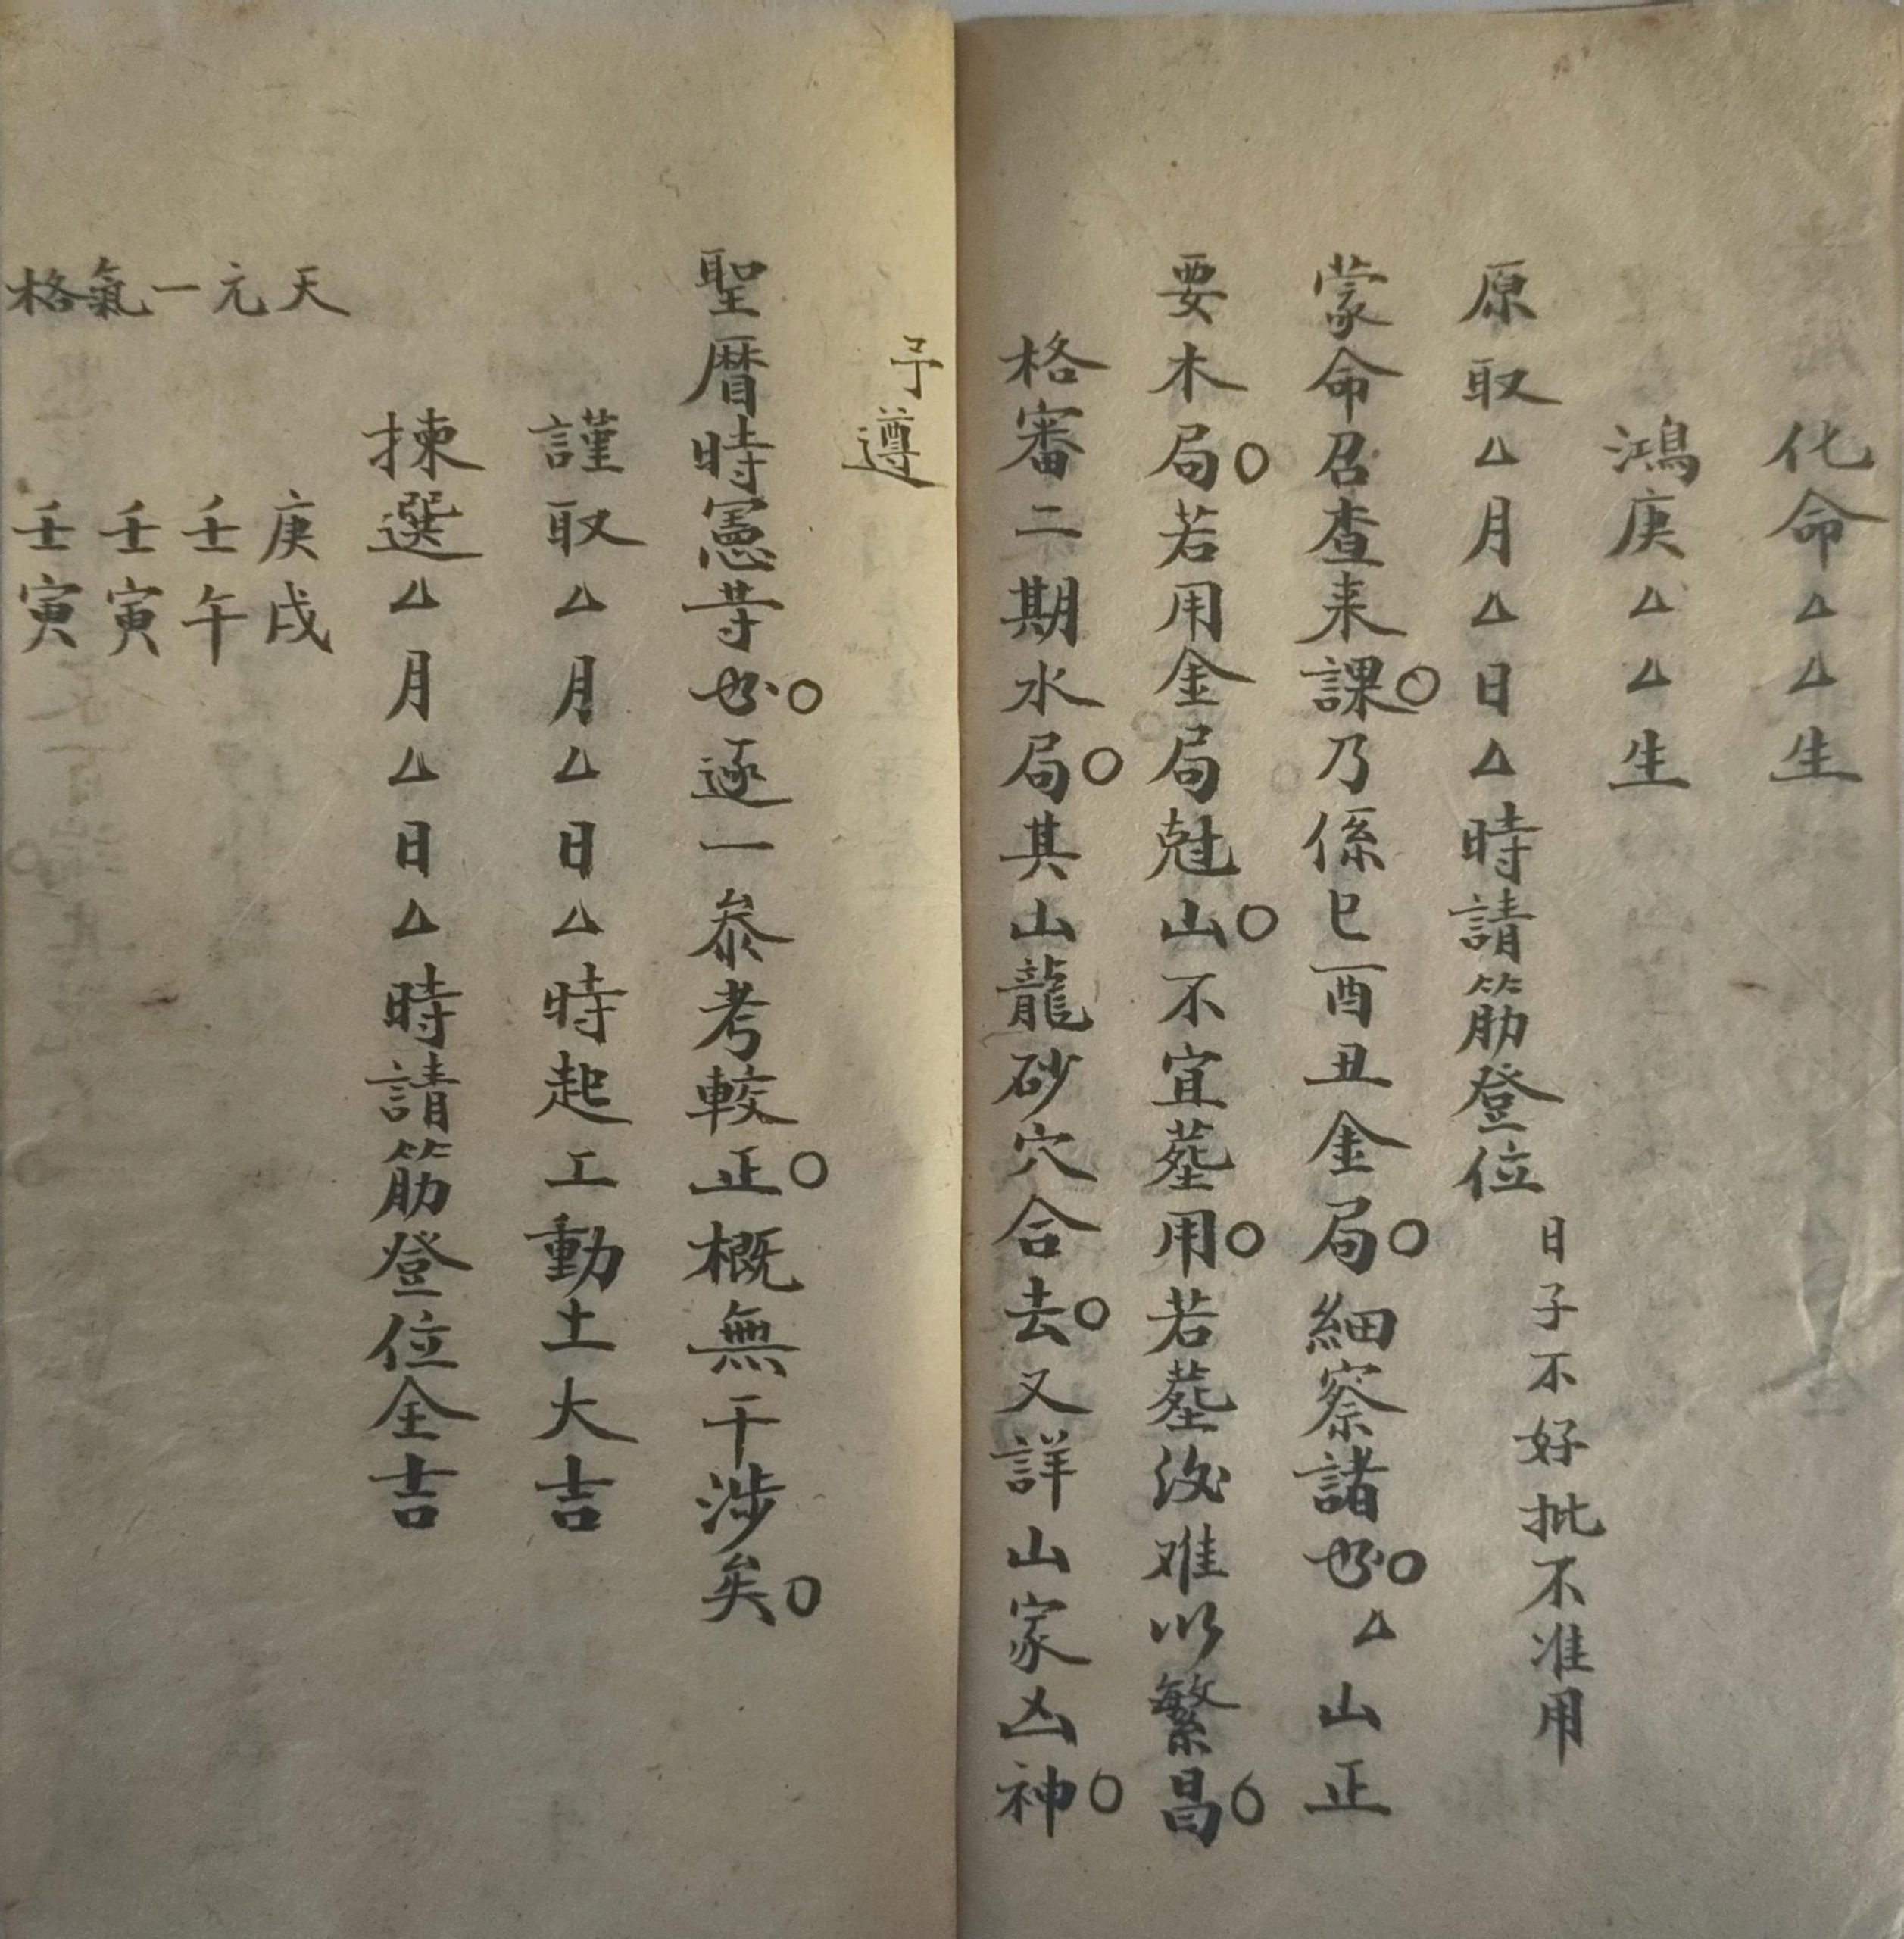 化命厶厶生
鴻庚厶厶生
原取厶月厶日厶時請筋登位
日子不好批不准用
蒙命召查来課○乃係巳酉丑金局○細察諸○厶山正
要木局○若用金局尅山○不宜塟用○若塟後难以繁昌○
格審二期水局○其山龍砂穴合去○又詳山家凶神○
予遵
聖曆時憲䓁○逐一叅考較正○概無干涉矣○
謹取厶月厶日厶時起工動土大吉
揀選厶月厶日厶時請筋登位全吉
天元一氣格
庚戌
壬午
壬寅
壬寅